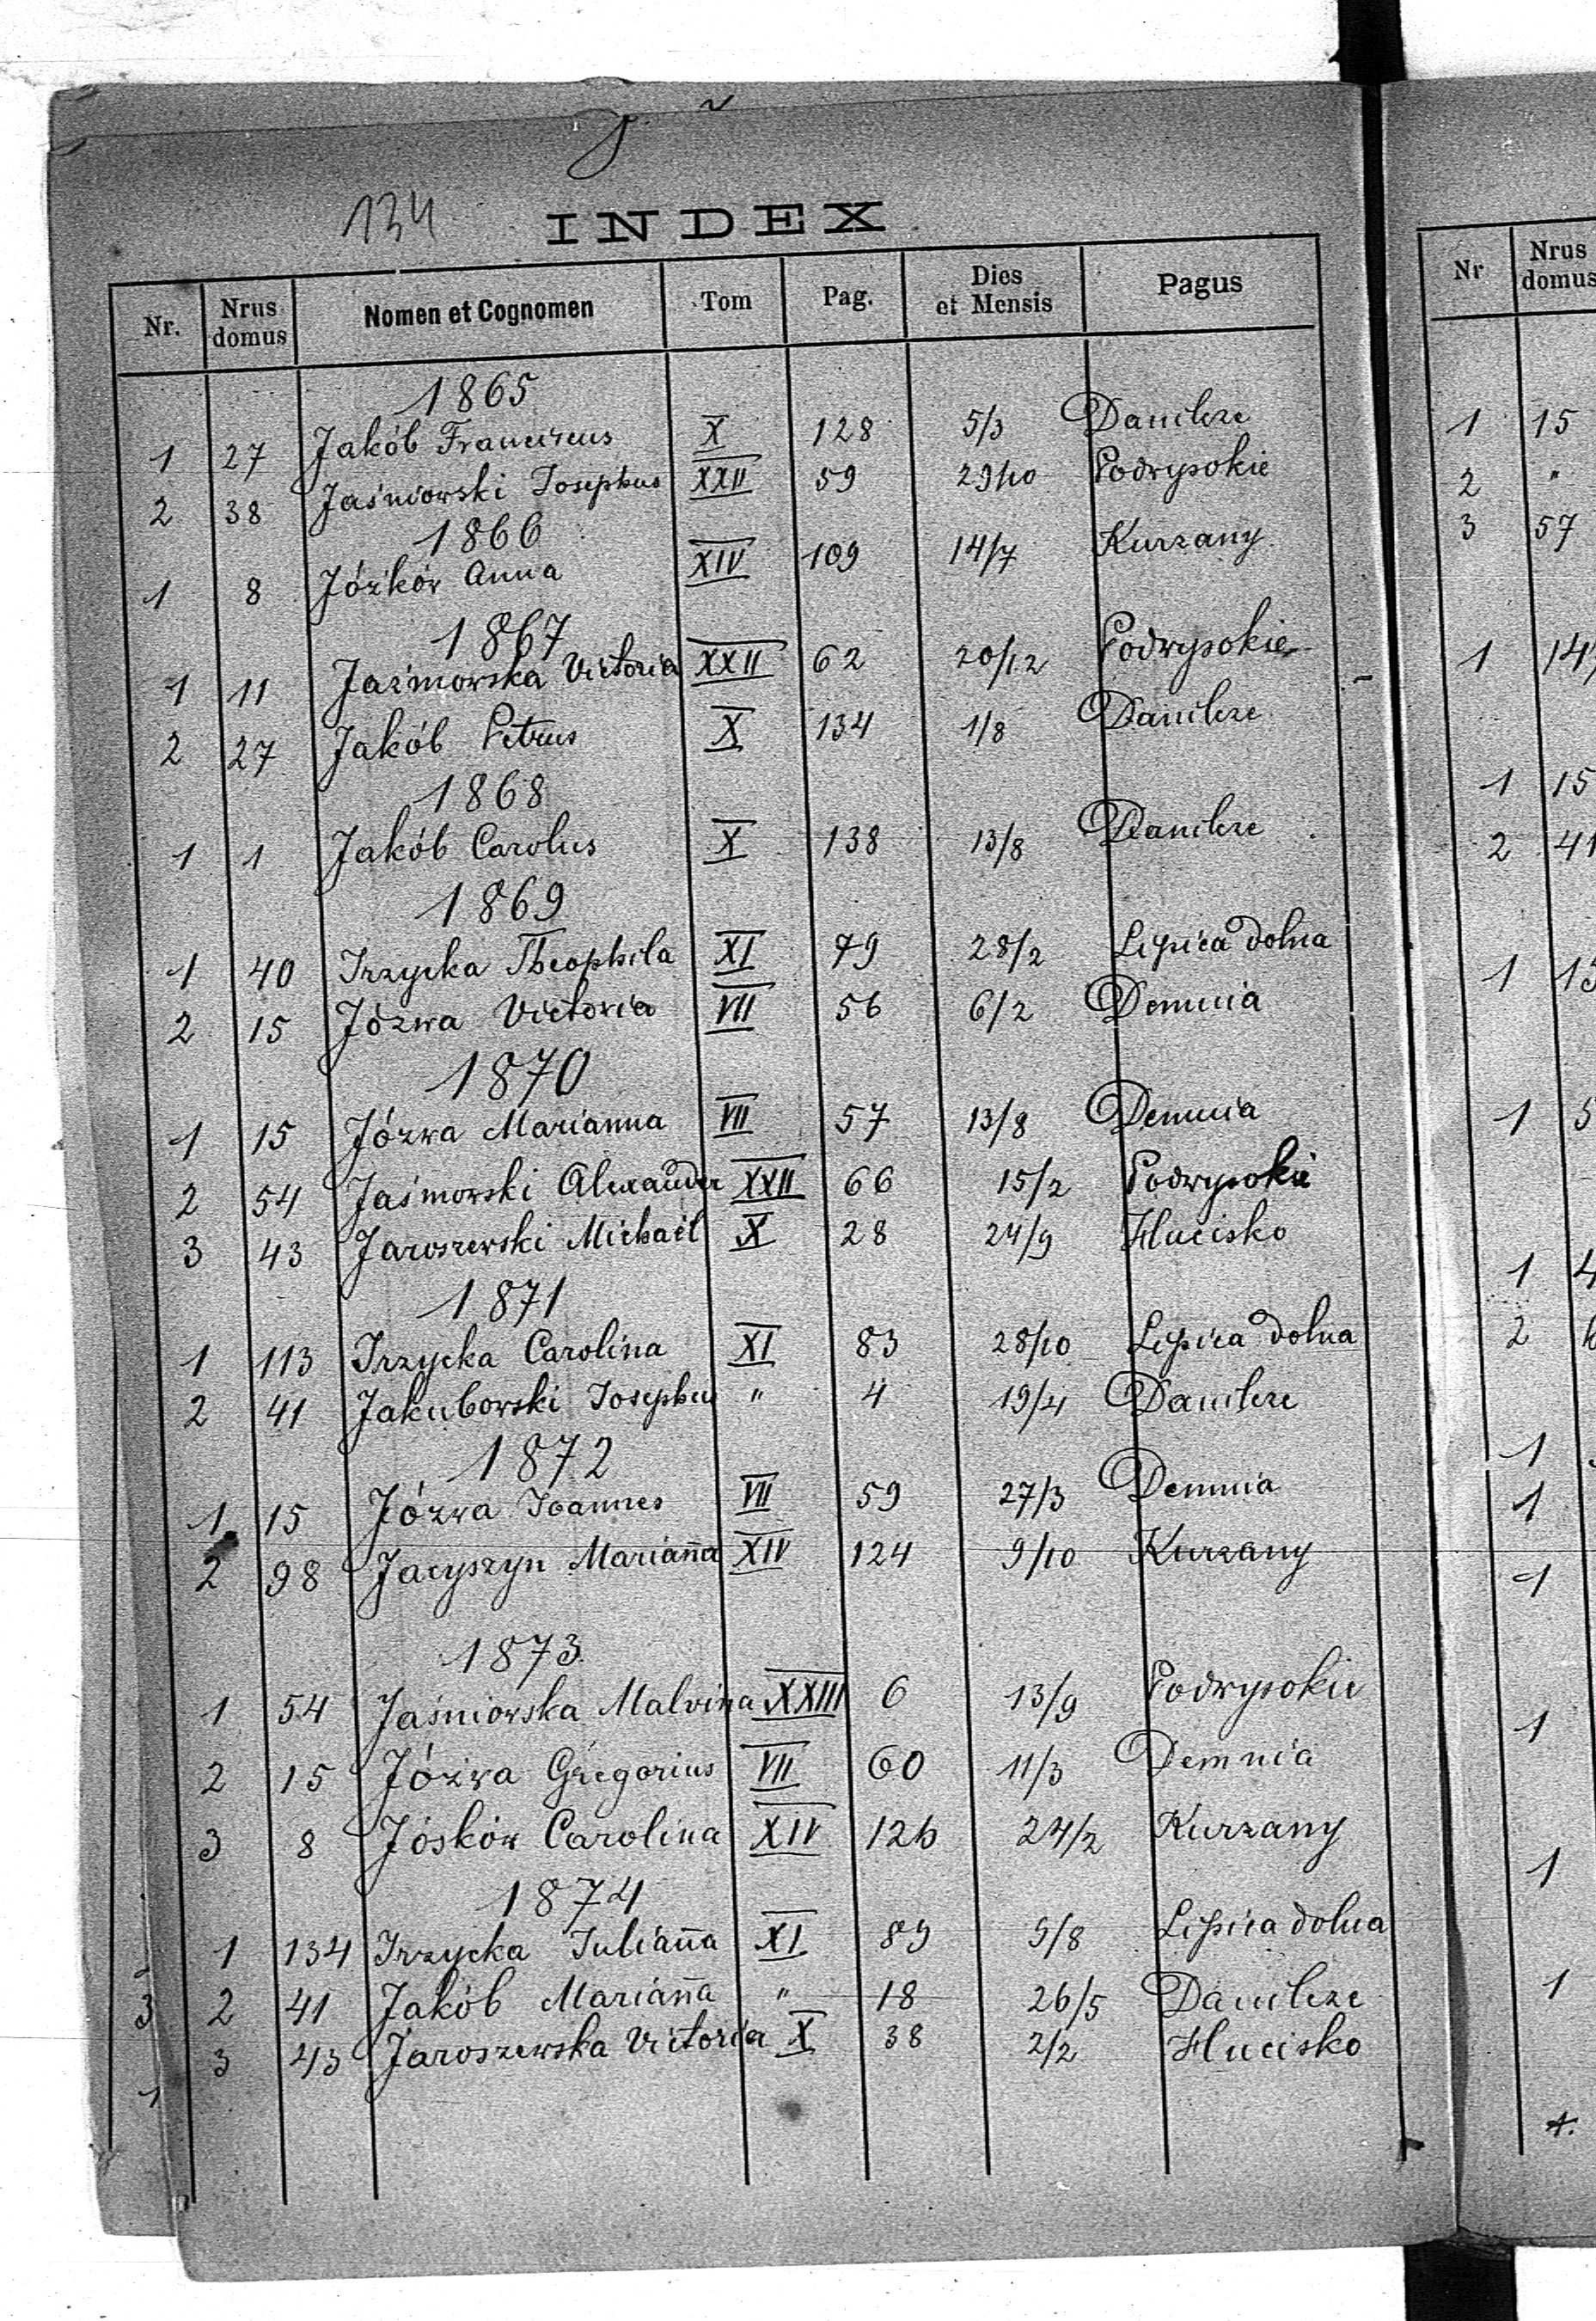 J.
134
INDEX
Nr. Nrus domus Nomen et Cognomen Tom Pag. Dies et Mensis Pagus
1865
1 27 Jakób Franciscus X 128 5/3 Danilcze
2 38 Jaśniowski Josephus XXII 59 29/10 Podwysokie
1866
1 8 Józków Anna XIV 109 14/7 Kurzany
1867
1 11 Jaśniowska Victoria XXII 62 20/12 Podwysokie
2 27 Jakób Petrus X 134 1/8 Danilcze
1868
1 1 Jakób Carolus X 138 13/8 Danilcze
1869
1 40 Irzycka Theophila XI 79 28/2 Lipica dolna
2 15 Józwa Victoria VII 56 6/2 Demnia
1870
1 15 Józwa Marianna VII 57 13/8 Demnia
2 54 Jaśniowski Alexander XXII 66 15/2 Podwysokie
3 43 Jaroszewski Michaël X 28 24/9 Hucisko
1871
1 113 Irzycka Carolina XI 83 28/10 Lipica dolna
2 41 Jakubowski Josephus " 4 19/4 Danilcze
1872
1 15 Józwa Joannes VII 59 27/3 Demnia
2 98 Jacyszyn Marian̄a XIV 124 9/10 Kurzany
1873
1 54 Jaśniowska Malvina XXIII 6 13/9 Podwysokie
2 15 Józwa Gregorius VII 60 11/3 Demnia
3 8 Jósków Carolina XIV 126 24/2 Kurzany
1874
1 134 Irzycka Julian̄a XI 89 9/8 Lipica dolna
2 41 Jakób Marian̄a " 18 26/5 Danilcze
3 43 Jaroszewska Victoria X 38 2/2 Hucisko
3
1
Nr Nrus domus
1 15
2 "
3 57
1 14
1 15
2 41
1 15
1 5
1 4
2
1
1
1
1
1
1